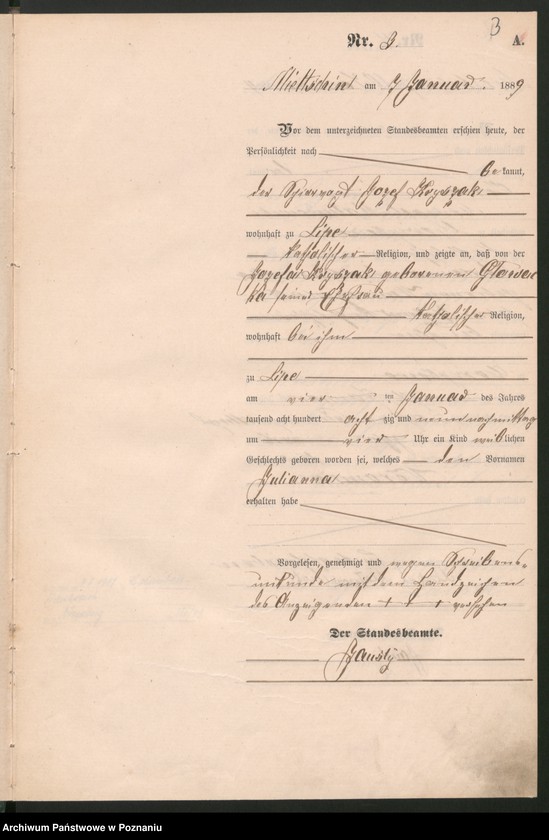 3
Nr. 3. A.
Mieltschin am 7 Januar 1889
Vor dem unterzeichneten Standesbeamten erschien heute, der
Persönlichkeit nach
be kannt,
der Jozef Kryszak
wohnhaft zu Lipe
katholischer Religion, und zeigte an, daß von der
Jozefa Kryszak geborenen
seiner Ehefrau
katholischer Religion,
wohnhaft bei ihm
zu Lipe
am vier ten Januar des Jahres
tausend acht hundert acht zig und neun nachmittag
um vier Uhr ein Kind weiblichen
Geschlechts geboren worden sei, welches den Vornamen
Julianna
erhalten habe
Vorgelesen, genehmigt und wegen Schreibens-
unkunde mit dem Handzeichen
des Anzeigenden + + + versehen
Der Standesbeamte.
Archiwum Państwowe w Poznaniu